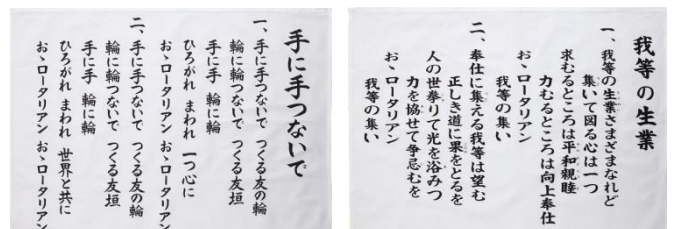 手に手つないで
一、手に手つないで つくる友の輪
輪に輪つないで つくる友垣
手に手 輪に輪
ひろがれ まわれ 一つ心に
おゝロータリアン おゝロータリアン
二、手に手つないで つくる友の輪
輪に輪つないで つくる友垣
手に手 輪に輪
ひろがれ まわれ 世界と共に
おゝロータリアン おゝロータリアン
我等の生業
一、我等の生業さまざまなれど
集いて図る心は一つ
求むるところは平和親睦
力むるところは向上奉仕
おゝロータリアン
我等の集い
二、奉仕に集える我等は望む
正しき道に果をとるを
人の世挙りて光を浴みつ
力を協せて争忌むを
おゝロータリアン
我等の集い